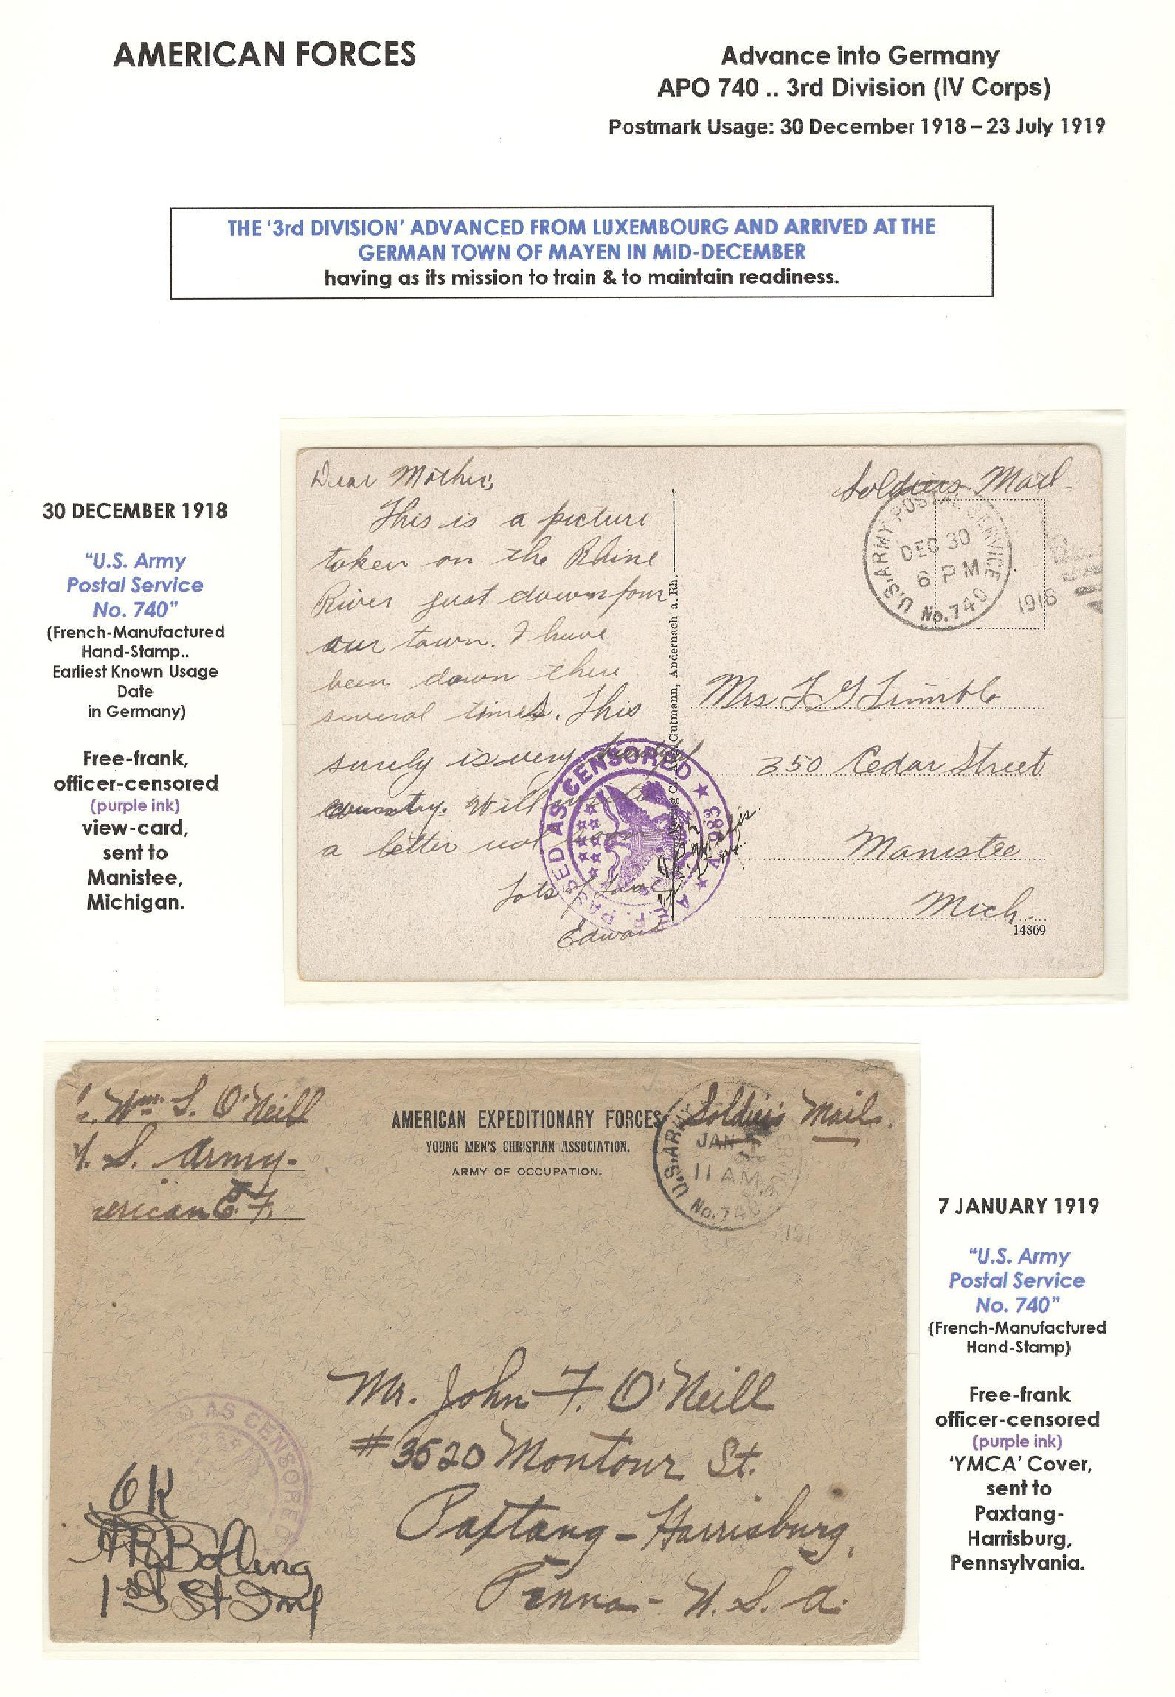 AMERICAN FORCES
Advance into Germany
APO 740 .. 3rd Division (IV Corps)
Postmark Usage: 30 December 1918 – 23 July 1919
THE '3rd DIVISION' ADVANCED FROM LUXEMBOURG AND ARRIVED AT THE
GERMAN TOWN OF MAYEN IN MID-DECEMBER
having as its mission to train & to maintain readiness.
30 DECEMBER 1918
"U.S. Army
Postal Service
No. 740"
(French-Manufactured
Hand-Stamp..
Earliest Known Usage
Date
in Germany)
Free-frank,
officer-censored
(purple ink)
view-card,
sent to
Manistee,
Michigan.
Dear Mother,
This is a picture
taken on the Rhine
River just down from
our town. I have
been down there
several times. This
surely is very
country. Will
a letter
Lots of Love
Edward
Gutmann, Andernach a. Rh.
PASSED AS CENSORED ★ A.
Soldiers Mail
U.S. ARMY POSTAL SERVICE
DEC 30
6 PM
No. 740
1918
Mrs F G Trimble
350 Cedar Street
Manistee
Mich.
14869
Wm. S. O'Neill
U. S. Army-
erican E. F.
AMERICAN EXPEDITIONARY FORCES
YOUNG MEN'S CHRISTIAN ASSOCIATION.
ARMY OF OCCUPATION.
Soldier's Mail.
U.S. ARMY
JAN
11 AM
No. 740
191
Mr. John F. O'Neill
#3520 Montour St.
Paxtang-Harrisburg,
Penna- U. S. A.
AS CENSORED
OK
1st Lt Inf
7 JANUARY 1919
"U.S. Army
Postal Service
No. 740"
(French-Manufactured
Hand-Stamp)
Free-frank
officer-censored
(purple ink)
'YMCA' Cover,
sent to
Paxtang-
Harrisburg,
Pennsylvania.